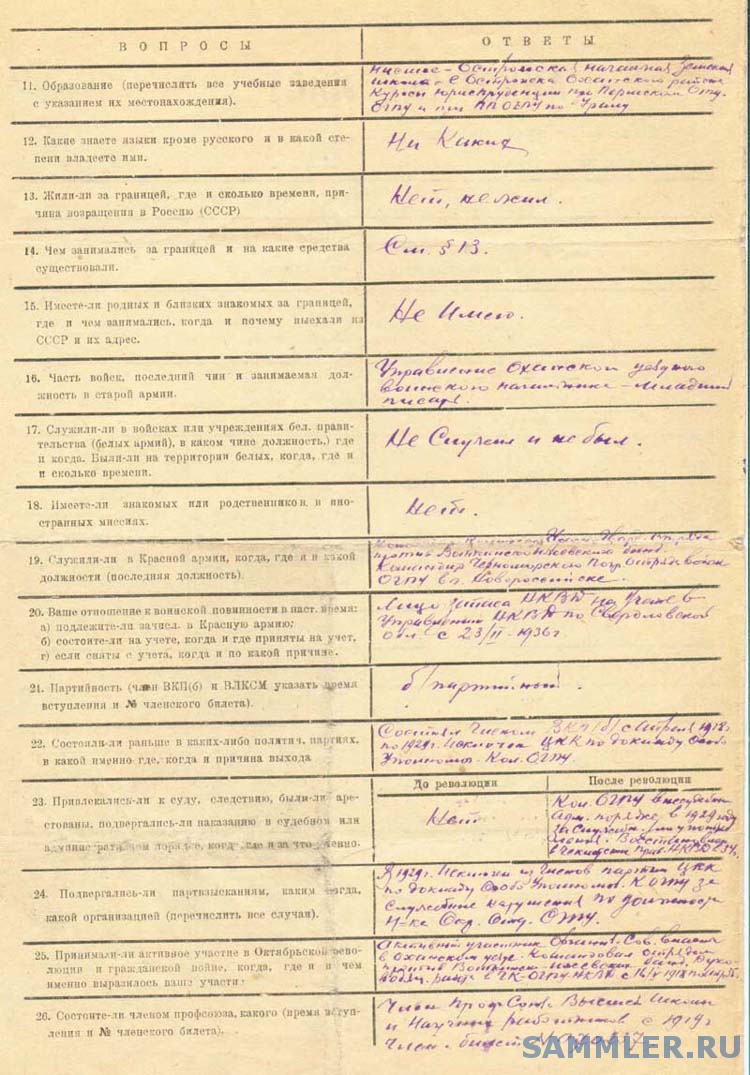 ВОПРОСЫ
ОТВЕТЫ
11. Образование (перечислить все учебные заведения
с указанием их местонахождения).
начальная Земская
школа - с Острожска Оханского района
Курсы юриспруденции при Пермском Отд.
ОГПУ и при ПП ОГПУ по Уралу
12. Какие знаете языки кроме русского и в какой сте-
пени владеете ими.
Ни Каких
13. Жили-ли за границей, где и сколько времени, при-
чина возвращения в Россию (СССР)
Нет, не жил.
14. Чем занимались за границей и на какие средства
существовали.
См. § 13.
15. Имеете-ли родных и близких знакомых за границей,
где и чем занимались, когда и почему выехали из
СССР и их адрес.
Не Имею.
16. Часть войск, последний чин и занимаемая дол-
жность в старой армии.
Управление Оханского уездного
воинского начальника - младший
писарь.
17. Служили-ли в войсках или учреждениях бел. прави-
тельства (белых армий), в каком чине должность,) где
и когда. Были-ли на территории белых, когда, где и
и сколько времени.
Не Служил и не был.
18. Имеете-ли знакомых или родственников в ино-
странных миссиях.
Нет.
19. Служили-ли в Красной армии, когда, где и в какой
должности (последняя должность).
против банд.
Командир Черноморского Погр. отряда войск
ОГПУ в г. Новороссийске.
20. Ваше отношение к воинской повинности в наст. время:
а) подлежите-ли зачисл. в Красную армию;
б) состоите-ли на учете, когда и где приняты на учет,
г) если сняты с учета, когда и по какой причине.
Лицо запаса НКВД на учете в
Управлении НКВД по Свердловской
обл. с 23/II-1936 г
21. Партийность (член ВКП(б) и ВЛКСМ указать время
вступления и № членского билета).
б/партийный.
22. Состояли-ли раньше в каких-либо политич. партиях,
в какой именно где, когда и причина выхода
Состоял Членом ВКП/б/ с Апреля 1918 г
по 1929 г. Исключен ЦКК по докладу Особо
Уполномоч. Кол. ОГПУ.
До революции
После революции
23. Привлекались-ли к суду, следствию, были-ли аре-
стованы, подвергались-ли наказанию в судебном или
административном порядке, когда где и за что именно.
Нет
Кол. ОГПУ внесудебном
Адм. порядке в 1929 году
24. Подвергались-ли партвзысканиям, каким когда,
какой организацией (перечислить все случаи).
В 1929 г. Исключен из Членов партии ЦКК
по докладу Особо Уполномоч. КОГПУ за
служебные нарушения по должности
Н-ка Окр. Отд. ОГПУ.
25. Принимали-ли активное участие в Октябрьской рево-
люции и гражданской войне, когда, где и в чем
именно выразилось ваше участие.
Активный участник Организ. Сов. власти
в Оханском уезде. Командовал отрядом
против банд.
ЧК-ОГПУ-НКВД с
26. Состоите-ли членом профсоюза, какого (время вступ-
ления и № членского билета).
Член Проф. Союз. Высшей Школы
и Научных работников с 1919 г
Член. билет №
SAMMLER.RU